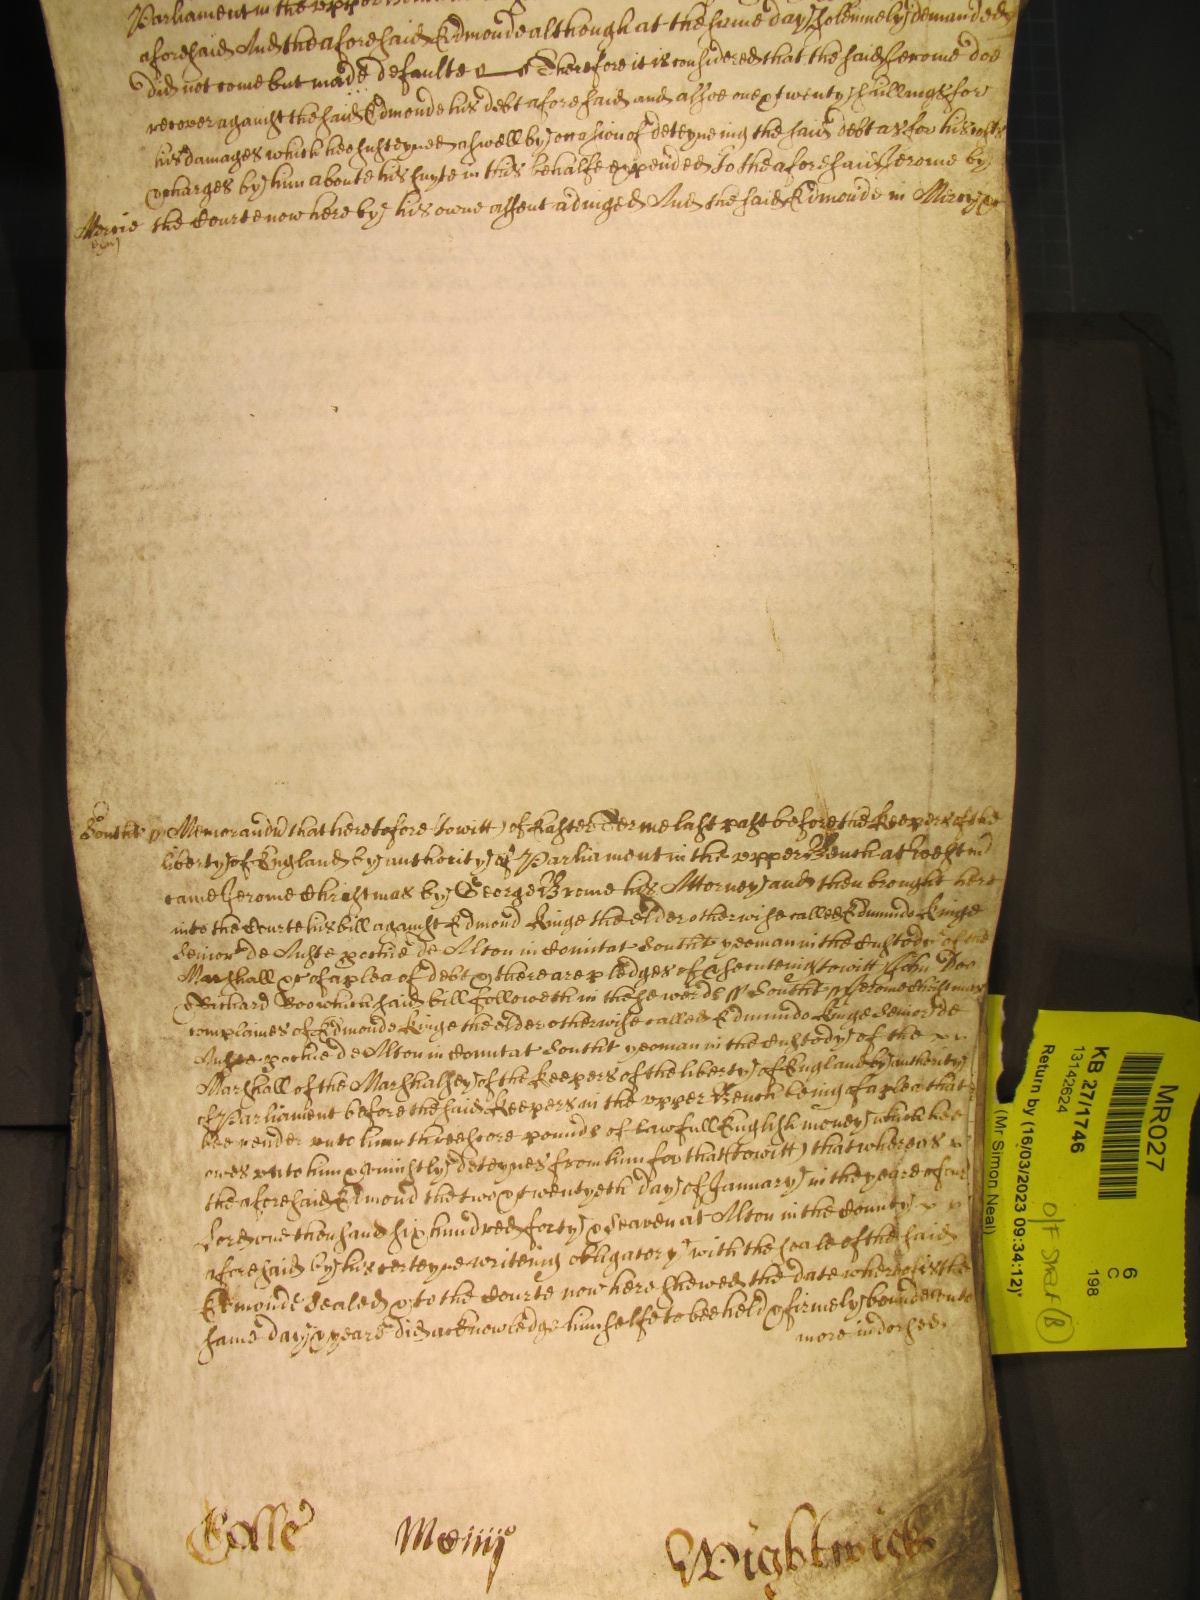 Parliament in the upper
aforesaid And the aforesaid Edmonde although at the same day solemnely demanded
did not come but made defaulte Therefore it is considered that the said Jerome doe
recover against the said Edmonde his debt aforesaid and alsoe one & twenty shillings for
his damages which hee susteyned aswell by occasion of deteyneing the said debt as for his costs
& charges by him aboute his suyte in this behalfe expended To the aforesaid Jerome by
Mercie the Courte now here by his owne assent adiuged And the said Edmonde in Mercy &c
Southt ss Memorand that heretofore (towitt) of Easter Terme last past before the Keepers of the
liberty of England by authority of Parliament in the upper Bench at Westm
came Jerome Christmas by George Brome his Attorney and then brought here
into the Courte his bill against Edmond Kinge the elder otherwise called Edmundo Kinge
Senior de Anste pochie de Alton in Comitat Southt yeoman in the Custody of the
Marshall &c of a plea of debt & there are pledges of prosecuteing towitt John Doe
& Richard Roo which said bill followeth in these words ss Southt ss Jerome Christmas
complaines of Edmonde Kinge the elder otherwise called Edmundo Kinge Senior de
Anste pochie de Alton in Comitat Southt yeoman in the Custody of the
Marshall of the Marshalsey of the Keepers of the liberty of England by authority
of Parliament before the said Keepers in the upper Bench being of a plea that
hee render unto him threescore pounds of lawfull English money which hee
owes unto him & uniustly deteynes from him for that (towitt) that whereas
the aforesaid Edmond the two & twentyeth day of January in the yeare of our
Lord one thousand six hundred forty & seaven at Alton in the County
aforesaid by his certeyne writeing obligatory with the seale of the said
Edmonde Sealed & to the Courte now here shewed the date whereof is the
same day & yeare did acknowledge himselfe to bee held & firmely bounde unto
more indorsed
Colle Mo iiijo Wightwick
MR027
KB 27/1746
13142624
Return by (16/03/2023 09:34:12)'
(Mr Simon Neal)
6
C
198
O/F SHELF (B)